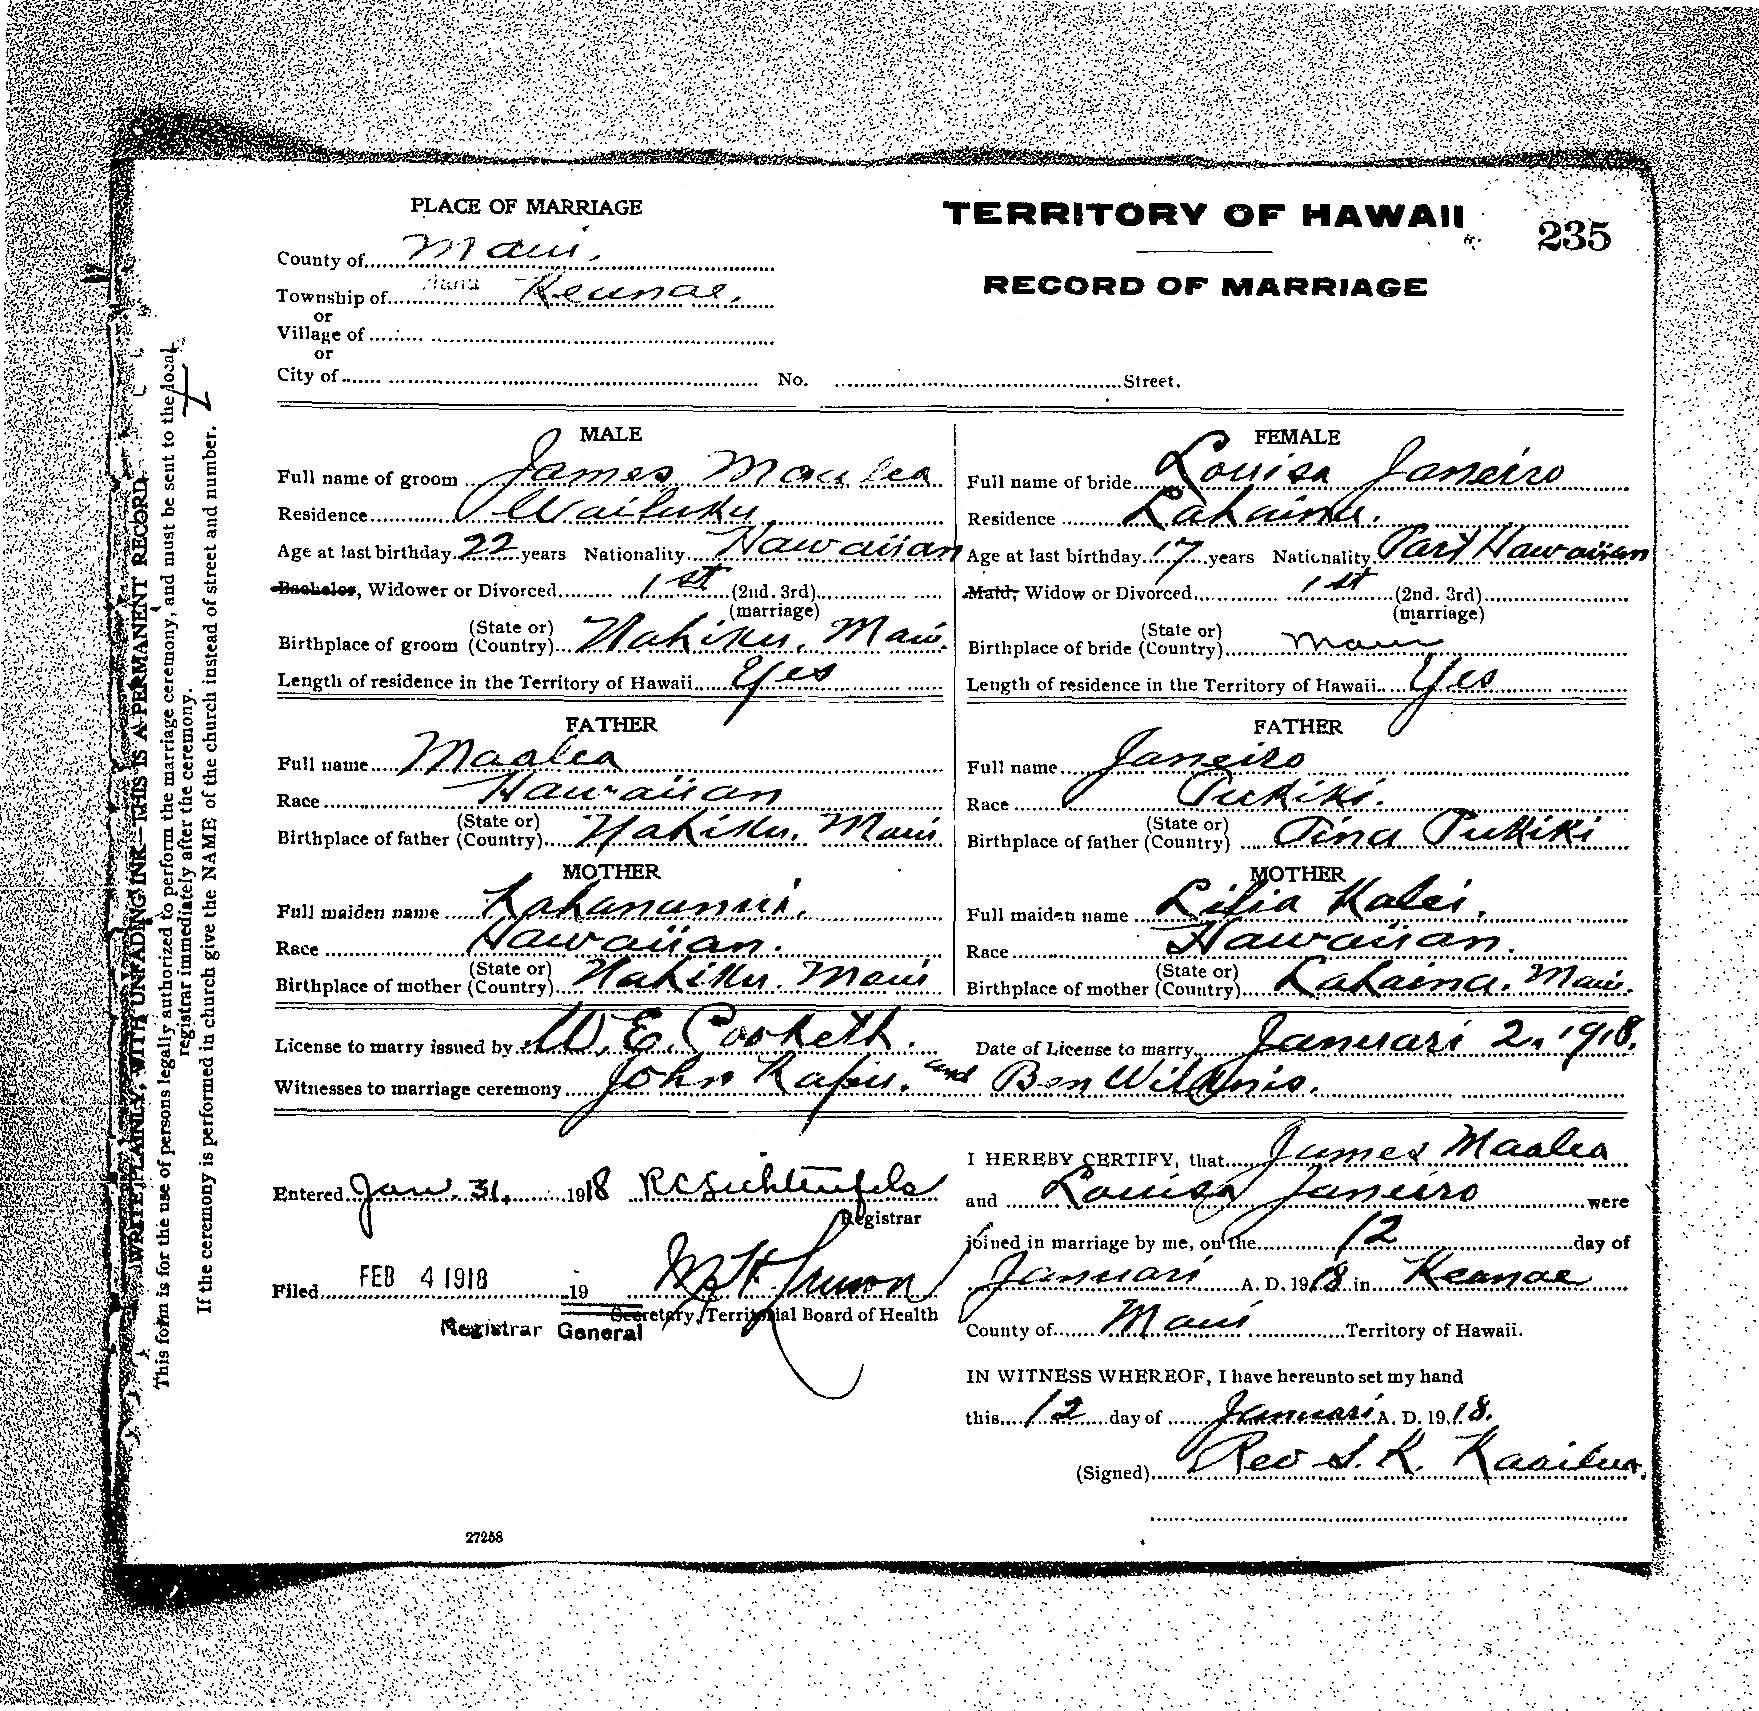 PLACE OF MARRIAGE
TERRITORY OF HAWAII
235
County of Maui.
RECORD OF MARRIAGE
Township of Hana Keanae.
or
Village of
or
City of No. Street.
MALE
Full name of groom James Maalea
Residence Wailuku
Age at last birthday 22 years Nationality Hawaiian
Bachelor, Widower or Divorced 1st (2nd. 3rd)
(marriage)
Birthplace of groom (State or Country) Nahiku, Maui.
Length of residence in the Territory of Hawaii Yes
FATHER
Full name Maalea
Race Hawaiian
Birthplace of father (State or Country) Nahiku, Maui
MOTHER
Full maiden name
Race Hawaiian.
Birthplace of mother (State or Country) Nahiku. Maui
FEMALE
Full name of bride Louisa Janeiro
Residence Lahaina.
Age at last birthday 17 years Nationality Part Hawaiian
Maid, Widow or Divorced 1st (2nd. 3rd)
(marriage)
Birthplace of bride (State or Country) Maui
Length of residence in the Territory of Hawaii Yes
FATHER
Full name Janeiro
Race Pukiki.
Birthplace of father (State or Country) Aina Pukiki
MOTHER
Full maiden name Lilia Kalei.
Race Hawaiian.
Birthplace of mother (State or Country) Lahaina. Maui.
License to marry issued by W. E. Date of License to marry Januari 2. 1918.
Witnesses to marriage ceremony John and Ben
Entered Jan. 31, 1918
Registrar
Filed FEB 4 1918 19
Secretary, Territorial Board of Health
Registrar General
I HEREBY CERTIFY, that James Maalea
and Louisa Janeiro were
joined in marriage by me, on the 12 day of
Januari A. D. 1918 in Keanae
County of Maui Territory of Hawaii.
IN WITNESS WHEREOF, I have hereunto set my hand
this 12 day of Januari A. D. 1918.
(Signed) Rev S. K. Kaailua.
27258
WRITE PLAINLY, WITH UNFADING INK—THIS IS A PERMANENT RECORD
This form is for the use of persons legally authorized to perform the marriage ceremony, and must be sent to the local
registrar immediately after the ceremony.
If the ceremony is performed in church give the NAME of the church instead of street and number.